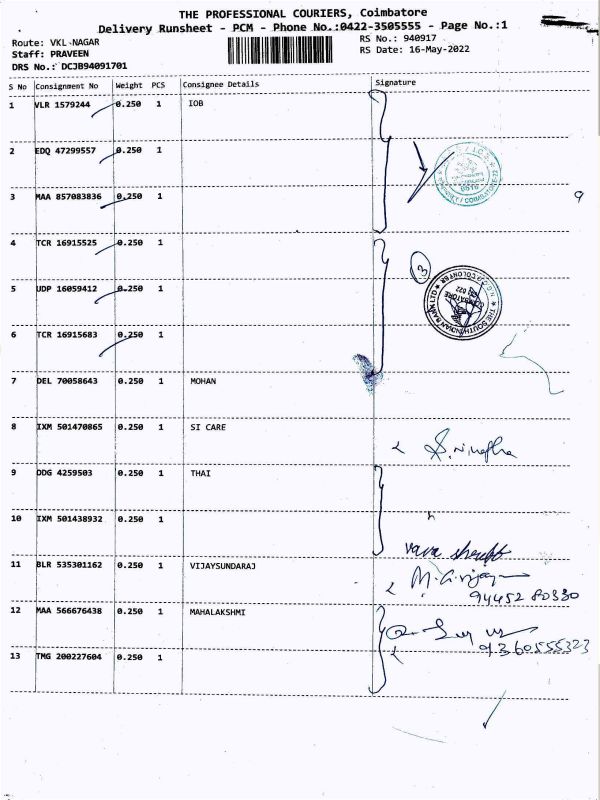 THE PROFESSIONAL COURIERS, Coimbatore
Delivery Runsheet - PCM - Phone No.:0422-3505555 - Page No.:1
Route: VKL-NAGAR
RS No.: 940917
Staff: PRAVEEN
RS Date: 16-May-2022
DRS No.: DCJB94091701
S No Consignment No Weight PCS Consignee Details Signature
1 VLR 1579244 0.250 1 IOB
2 EDQ 47299557 0.250 1
3 MAA 857083836 0.250 1
9
4 TCR 16915525 0.250 1
3
5 UDP 16059412 0.250 1
THE SOUTH INDIAN BANK LTD
6 TCR 16915683 0.250 1
7 DEL 70058643 0.250 1 MOHAN
8 IXM 501470865 0.250 1 SI CARE
9 DDG 4259503 0.250 1 THAI
10 IXM 501438932 0.250 1
11 BLR 535301162 0.250 1 VIJAYSUNDARAJ
94452 80330
12 MAA 566676438 0.250 1 MAHALAKSHMI
9360555323
13 TMG 200227604 0.250 1